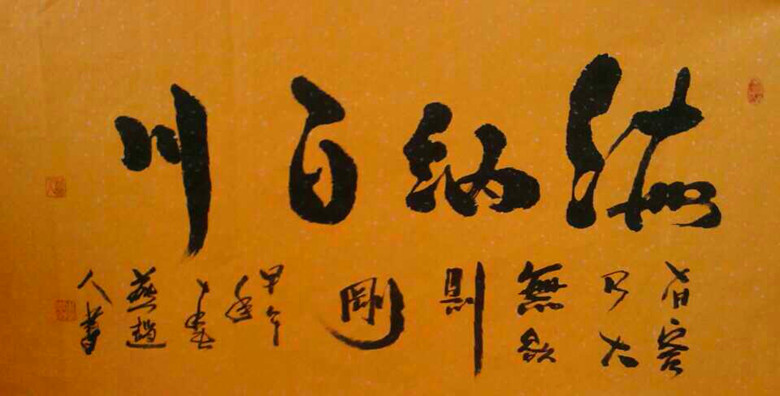 海纳百川
有容
乃大
無欲
則
剛
甲午
年
燕趙
人書